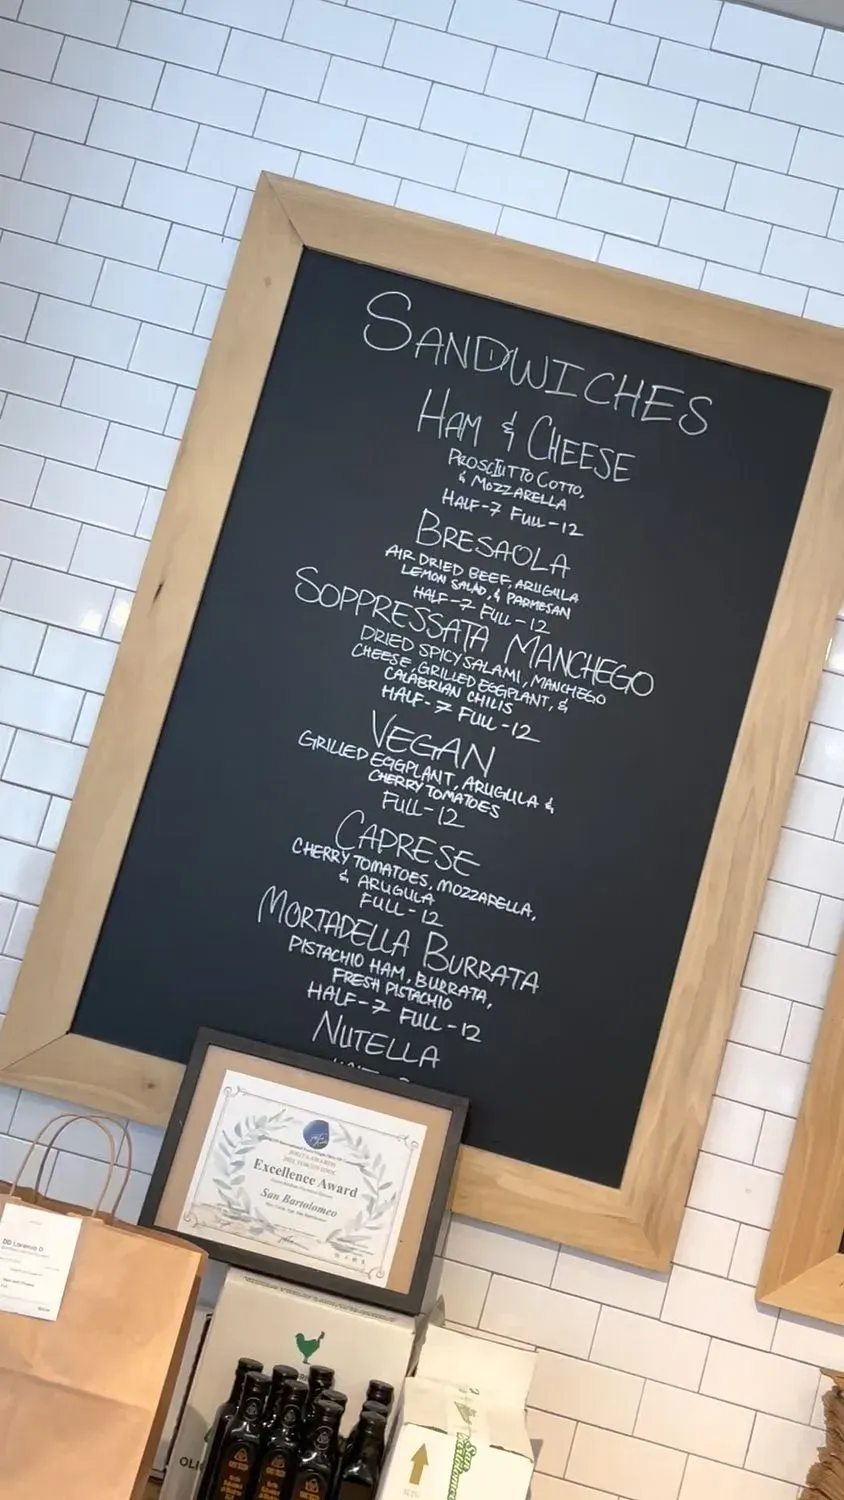 SANDWICHES
HAM & CHEESE
PROSCIUTTO COTTO,
& MOZZARELLA
HALF-7 FULL-12
BRESAOLA
AIR DRIED BEEF, ARUGULA
LEMON SALAD, & PARMESAN
HALF-7 FULL-12
SOPPRESSATA MANCHEGO
DRIED SPICY SALAMI, MANCHEGO
CHEESE, GRILLED EGGPLANT, &
CALABRIAN CHILIS
HALF-7 FULL-12
VEGAN
GRILLED EGGPLANT, ARUGULA &
CHERRY TOMATOES
FULL-12
CAPRESE
CHERRY TOMATOES, MOZZARELLA,
& ARUGULA
FULL-12
MORTADELLA BURRATA
PISTACHIO HAM, BURRATA,
FRESH PISTACHIO
HALF-7 FULL-12
NUTELLA
Excellence Award
San Bartolomeo
DD Lorenzo D